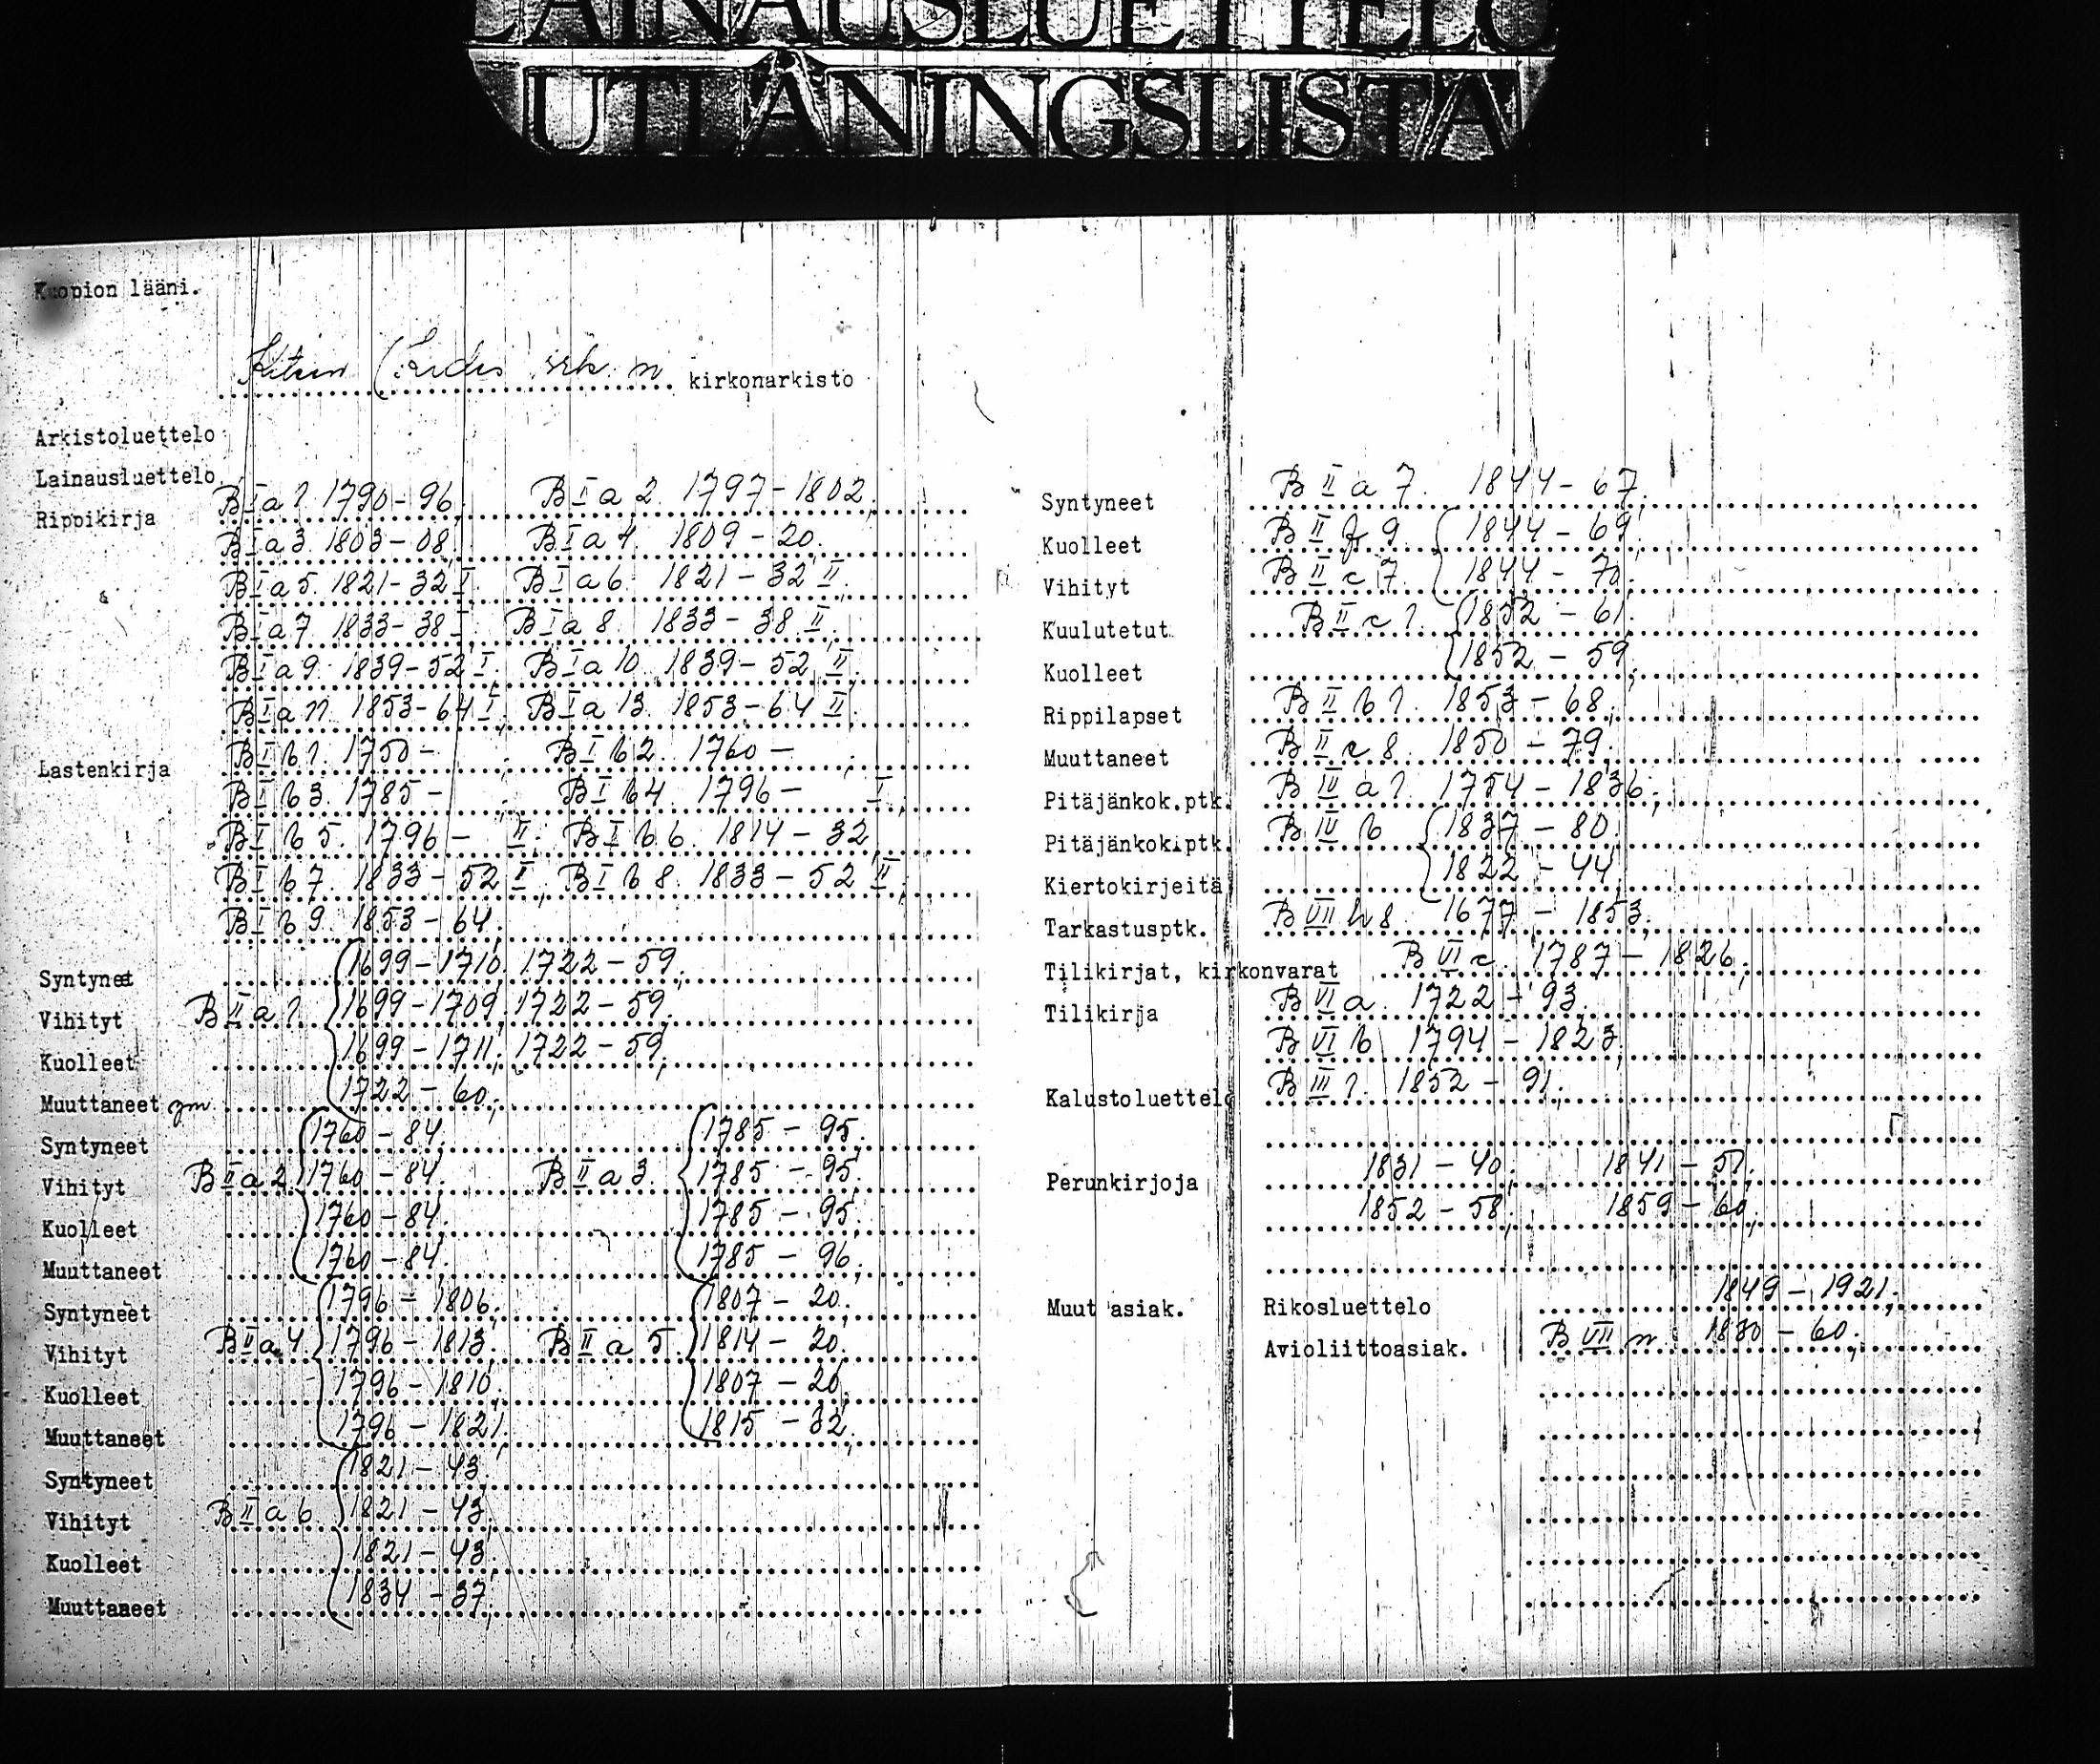 LAINAUSLUETTELO
UTLÅNINGSLISTA
Kuopion lääni.
Kiteen (Kides srk:n kirkonarkisto
Arkistoluettelo
Lainausluettelo
Rippikirja B I a 1. 1790-96; B I a 2. 1797-1802;
B I a 3. 1803-08; B I a 4. 1809-20.
B I a 5. 1821-32 I. B I a 6. 1821-32 II.
B I a 7. 1833-38 I B I a 8. 1833-38 II;
B I a 9. 1839-52 I. B I a 10. 1839-52 II;
B I a 1853-64 I; B I a 13. 1853-64 II.
Lastenkirja B I b 1. 1750- ; B I b 2. 1760- ;
B I b 3. 1785- ; B I b 4. 1796- I;
B I b 5. 1796- II; B I b 6. 1814-32;
B I b 7. 1833-52 I; B I b 8. 1833-52 II;
B I b 9. 1853-64.
Syntyneet 1699-1710; 1722-59;
Vihityt B II a 1 1699-1709; 1722-59;
Kuolleet 1699-1711; 1722-59;
Muuttaneet ym 1722-60;
Syntyneet 1760-84; 1785-95;
Vihityt B II a 2. 1760-84. B II a 3. 1785-95;
Kuolleet 1760-84; 1785-95;
Muuttaneet 1760-84; 1785-96;
Syntyneet 1796-1806; 1807-20;
Vihityt B II a 4 1796-1813. B II a 5. 1814-20.
Kuolleet 1796-1810; 1807-20;
Muuttaneet 1796-1821; 1815-32;
Syntyneet 1821-43;
Vihityt B II a 6 1821-43;
Kuolleet 1821-43;
Muuttaneet 1834-37;
Syntyneet B II a 7. 1844-67;
Kuolleet B II f 9. 1844-69;
Vihityt B II c 7. 1844-70;
Kuulutetut B II c 1. 1852-61.
Kuolleet 1852-59;
Rippilapset B II b 1. 1853-68;
Muuttaneet B II 8. 1850-79;
Pitäjänkok.ptk. B IV a 1. 1754-1836;
Pitäjänkok.ptk. B IV b 1837-80;
Kiertokirjeitä 1822-44;
Tarkastusptk. B VII h 8. 1677-1853;
Tilikirjat, kirkonvarat B VI c. 1787-1826;
Tilikirja B VI a. 1722-93;
B VI b 1794-1823;
Kalustoluettelo B III 1. 1852-91;
Perunkirjoja 1831-40; 1841-51;
1852-58; 1859-60;
Muut asiak. Rikosluettelo 1849-1921;
Avioliittoasiak. B VII n. 1830-60;